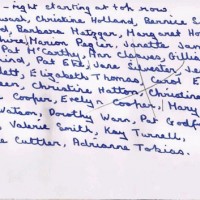 - right starting at top row
ward, Christine Holland, Bernice S
d, Barbara Hatggar, Margaret Ho
hire, Marion Pegler, Janette Jam
Pat McCarthy, Ann Cleaver, Gilli
ind, Pat Ell, Jane Silvester, Je
lett, Elizabeth Thomas, Carol E
een, Christine Hatton, Christine
e Cooper, Evelyn Cooper, Mary
Watson, Dorothy Warr, Pat Godf
, Valerie Smith, Kay Turrell,
e Cuttler, Adrianne Tobias.